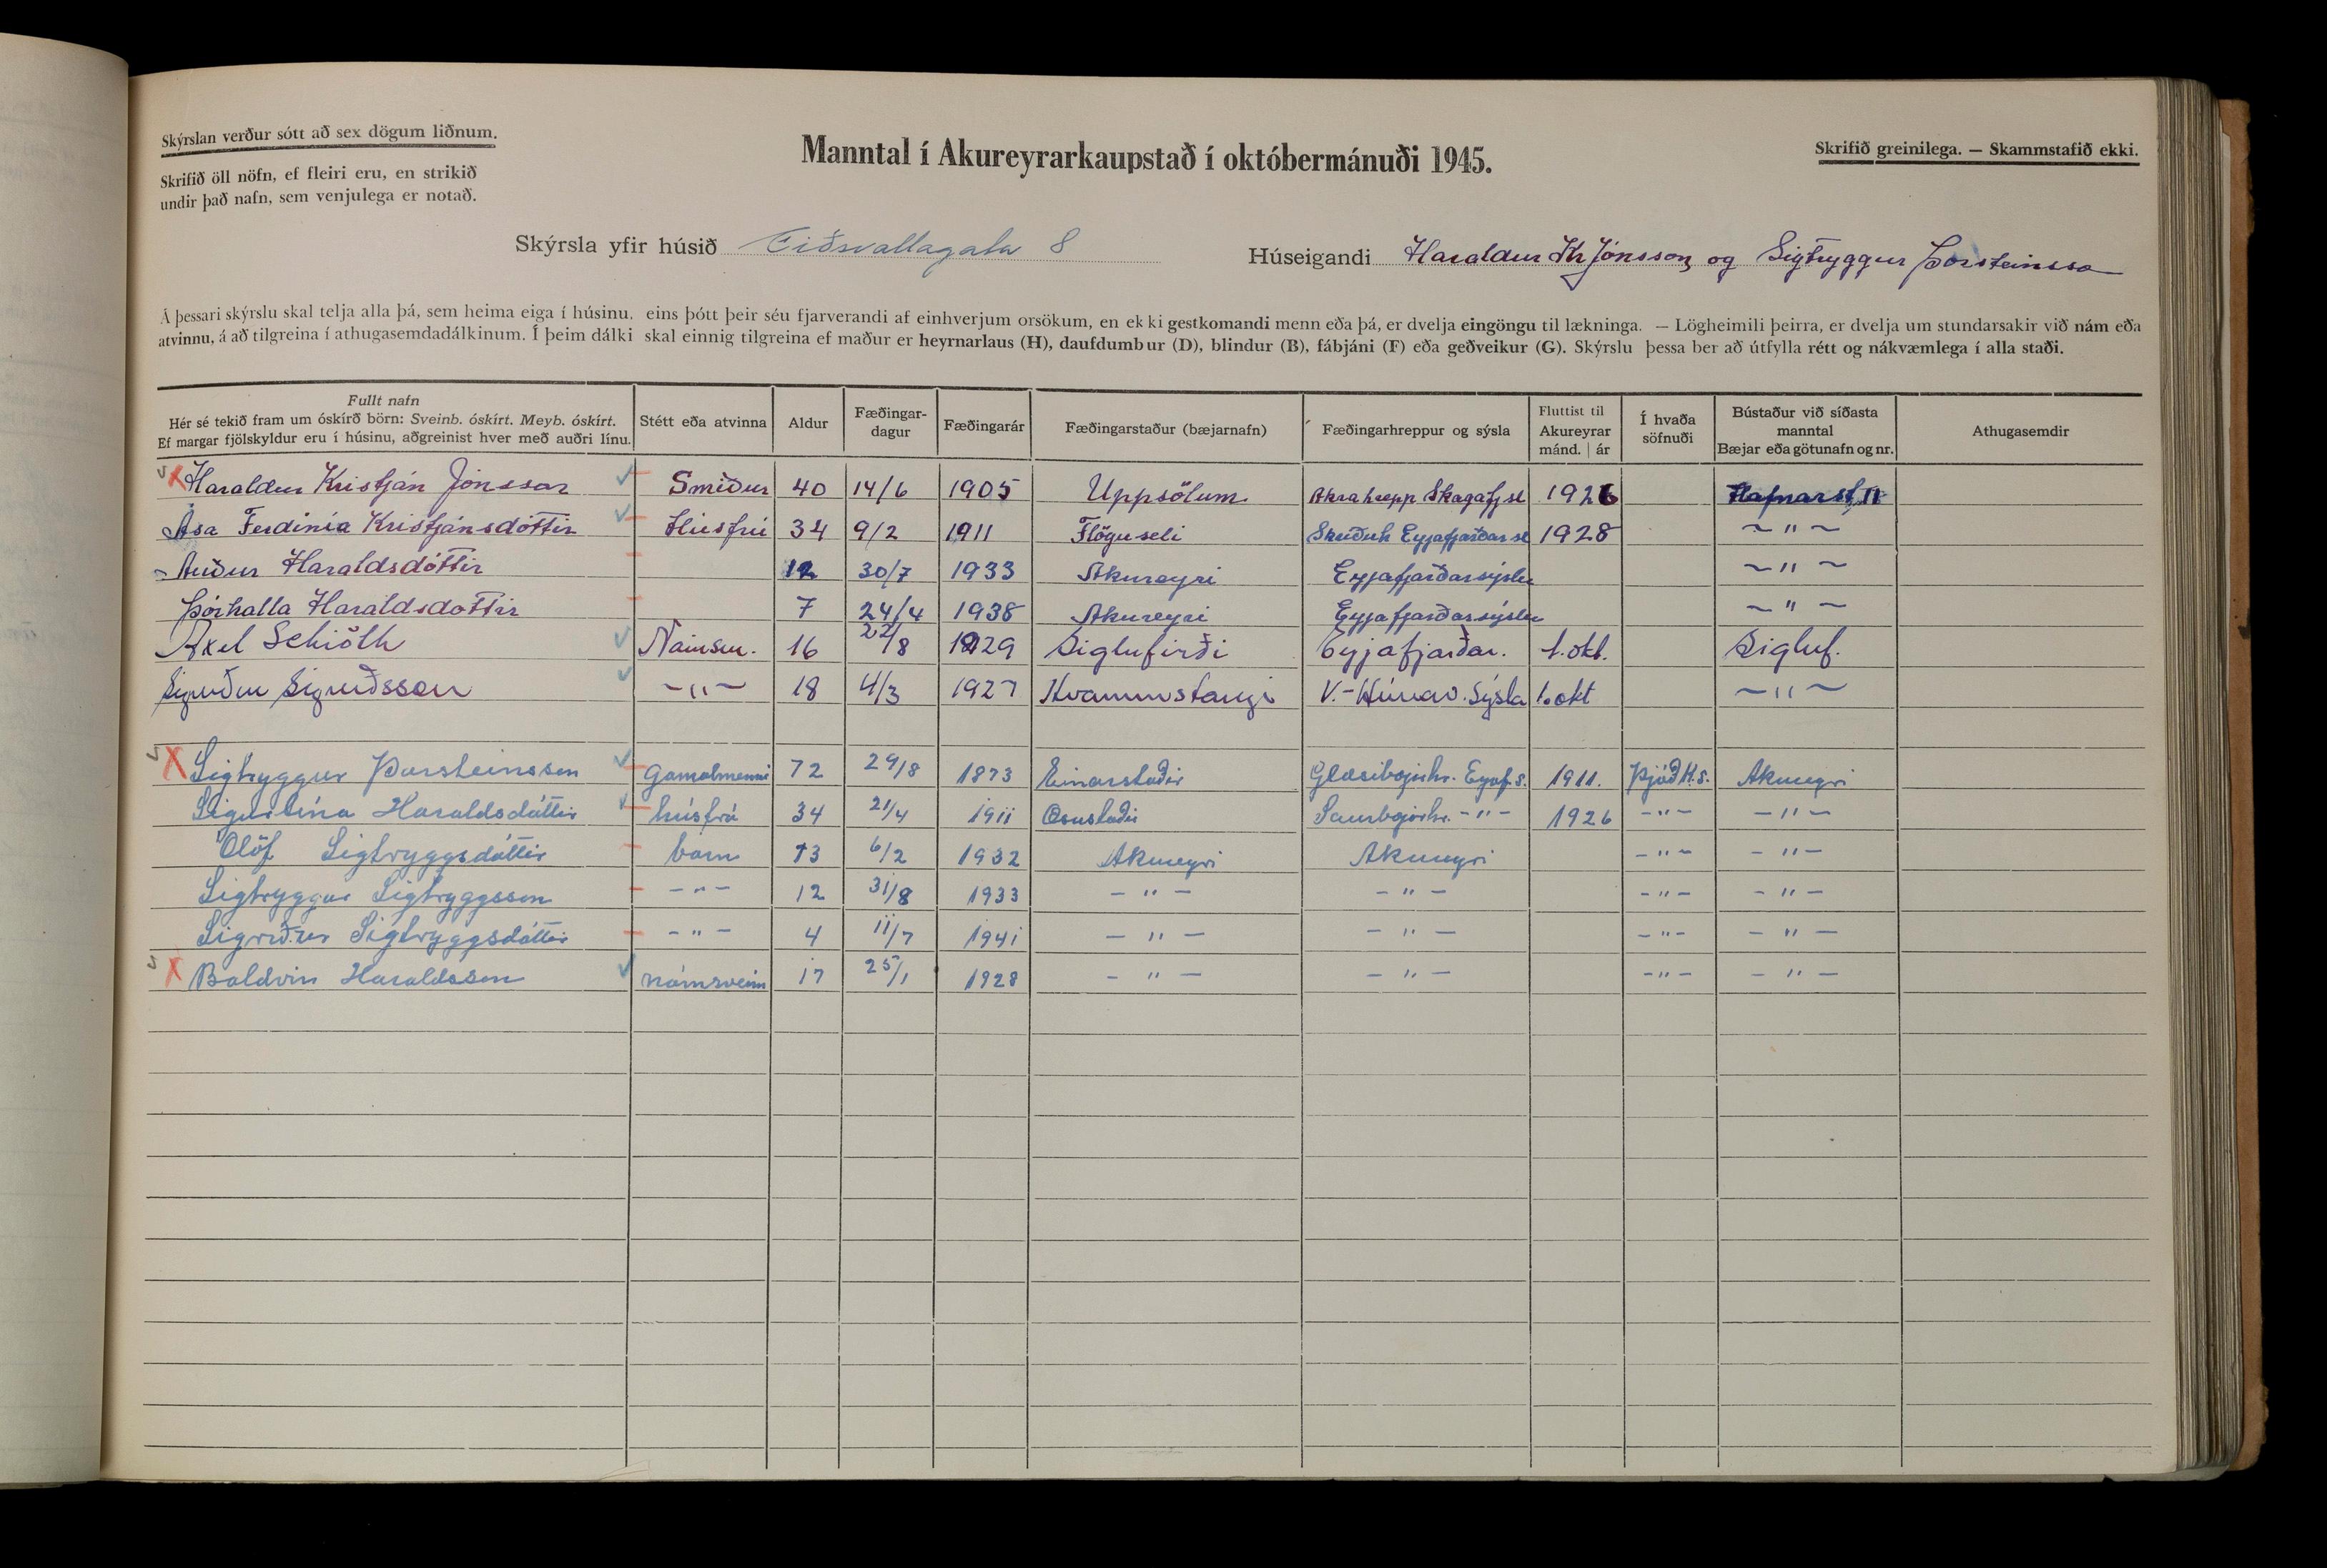 Skýrslan verður sótt að sex dögum liðnum.
Skrifið öll nöfn, ef fleiri eru, en strikið
undir það nafn, sem venjulega er notað.
Manntal í Akureyrarkaupstað í októbermánuði 1945.
Skrifið greinilega. — Skammstafið ekki.
Skýrsla yfir húsið Eiðsvallagata 8
Húseigandi Haraldur Kr Jónsson og Sigtryggur Þorsteinsso
Á þessari skýrslu skal telja alla þá, sem heima eiga í húsinu, eins þótt þeir séu fjarverandi af einhverjum orsökum, en ekki gestkomandi menn eða þá, er dvelja eingöngu til lækninga. — Lögheimili þeirra, er dvelja um stundarsakir við nám eða
atvinnu, á að tilgreina í athugasemdadálkinum. Í þeim dálki skal einnig tilgreina ef maður er heyrnarlaus (H), daufdumbur (D), blindur (B), fábjáni (F) eða geðveikur (G). Skýrslu þessa ber að útfylla rétt og nákvæmlega í alla staði.
Fullt nafn
Hér sé tekið fram um óskírð börn: Sveinb. óskírt. Meyb. óskírt.
Ef margar fjölskyldur eru í húsinu, aðgreinist hver með auðri línu.
Stétt eða atvinna
Aldur
Fæðingar-
dagur
Fæðingarár
Fæðingarstaður (bæjarnafn)
Fæðingarhreppur og sýsla
Fluttist til
Akureyrar
mánd. | ár
Í hvaða
söfnuði
Bústaður við síðasta
manntal
Bæjar eða götunafn og nr.
Athugasemdir
Haraldur Kristján Jónsson Smiður 40 14/6 1905 Uppsölum Akrahrepp Skagafj sl 1926 Hafnarst, 11
Ása Ferdinía Kristjánsdóttir Húsfrú 34 9/2 1911 Flöguseli Skriðuh Eyjafjarðar sl 1928 ~ " ~
Auður Haraldsdóttir 12 30/7 1933 Akureyri Eyjafjarðarsýslu ~ " ~
Þórhalla Haraldsdottir 7 24/4 1938 Akureyri Eyjafjarðarsýslu ~ " ~
Axel Schiöth Námsm. 16 22/8 1929 Siglufirði Eyjafjarðar. 1. okt. Sigluf.
Sigurður Sigurðsson ~ " ~ 18 4/3 1927 Hvammstangi V.-Húnav. Sýsla 1. okt ~ " ~
Sigtryggur Þorsteinsson Gamalmenni 72 29/8 1873 Einarstaðir Glæsibæjarhr. Eyaf.s. 1911. Þjóðk.s. Akureyri
Sigurlína Haraldsdóttir húsfrú 34 21/4 1911 Saurbæjarhr. - " - 1926 - " - - " -
Ólöf Sigtryggsdóttir barn 13 6/2 1932 Akureyri Akureyri - " - - " -
Sigtryggur Sigtryggsson - " - 12 31/8 1933 - " - - " - - " - - " -
Sigríður Sigtryggsdóttir - " - 4 11/7 1941 - " - - " - - " - - " -
Baldvin Haraldsson námsveinn 17 25/1 1928 - " - - " - - " - - " -